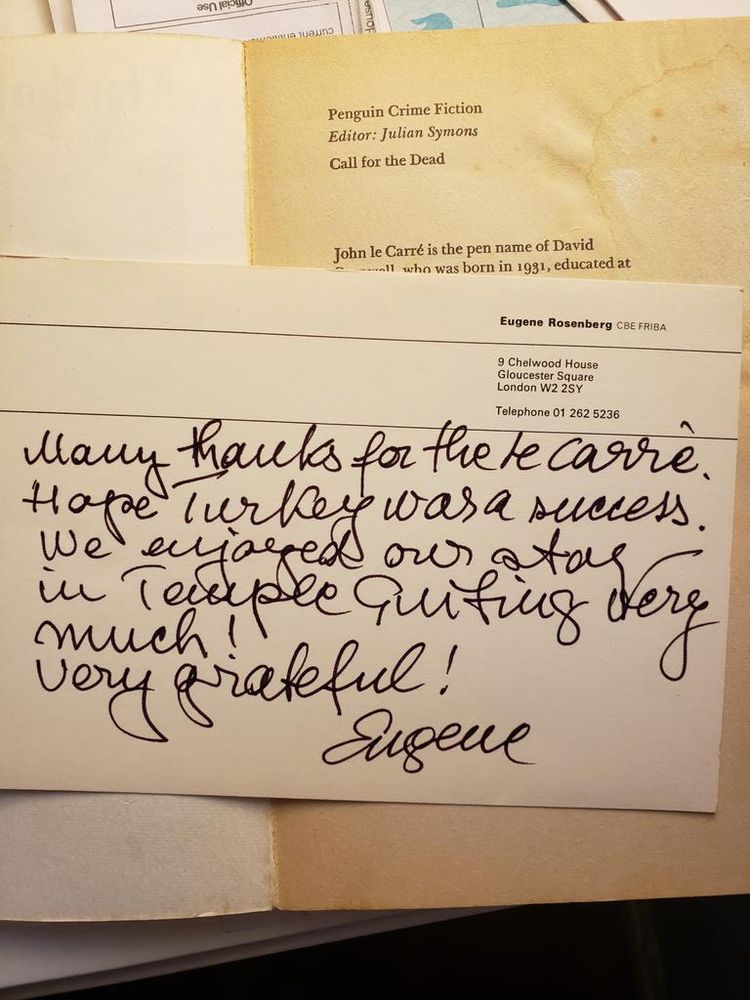 Official Use
Penguin Crime Fiction
Editor: Julian Symons
Call for the Dead
John le Carré is the pen name of David
who was born in 1931, educated at
Eugene Rosenberg CBE FRIBA
9 Chelwood House
Gloucester Square
London W2 2SY
Telephone 01 262 5236
Many thanks for the le carrê.
Hope Turkey was a success.
We enjoyed our stay
in Temple Guiting very
much!
Very grateful!
Eugene